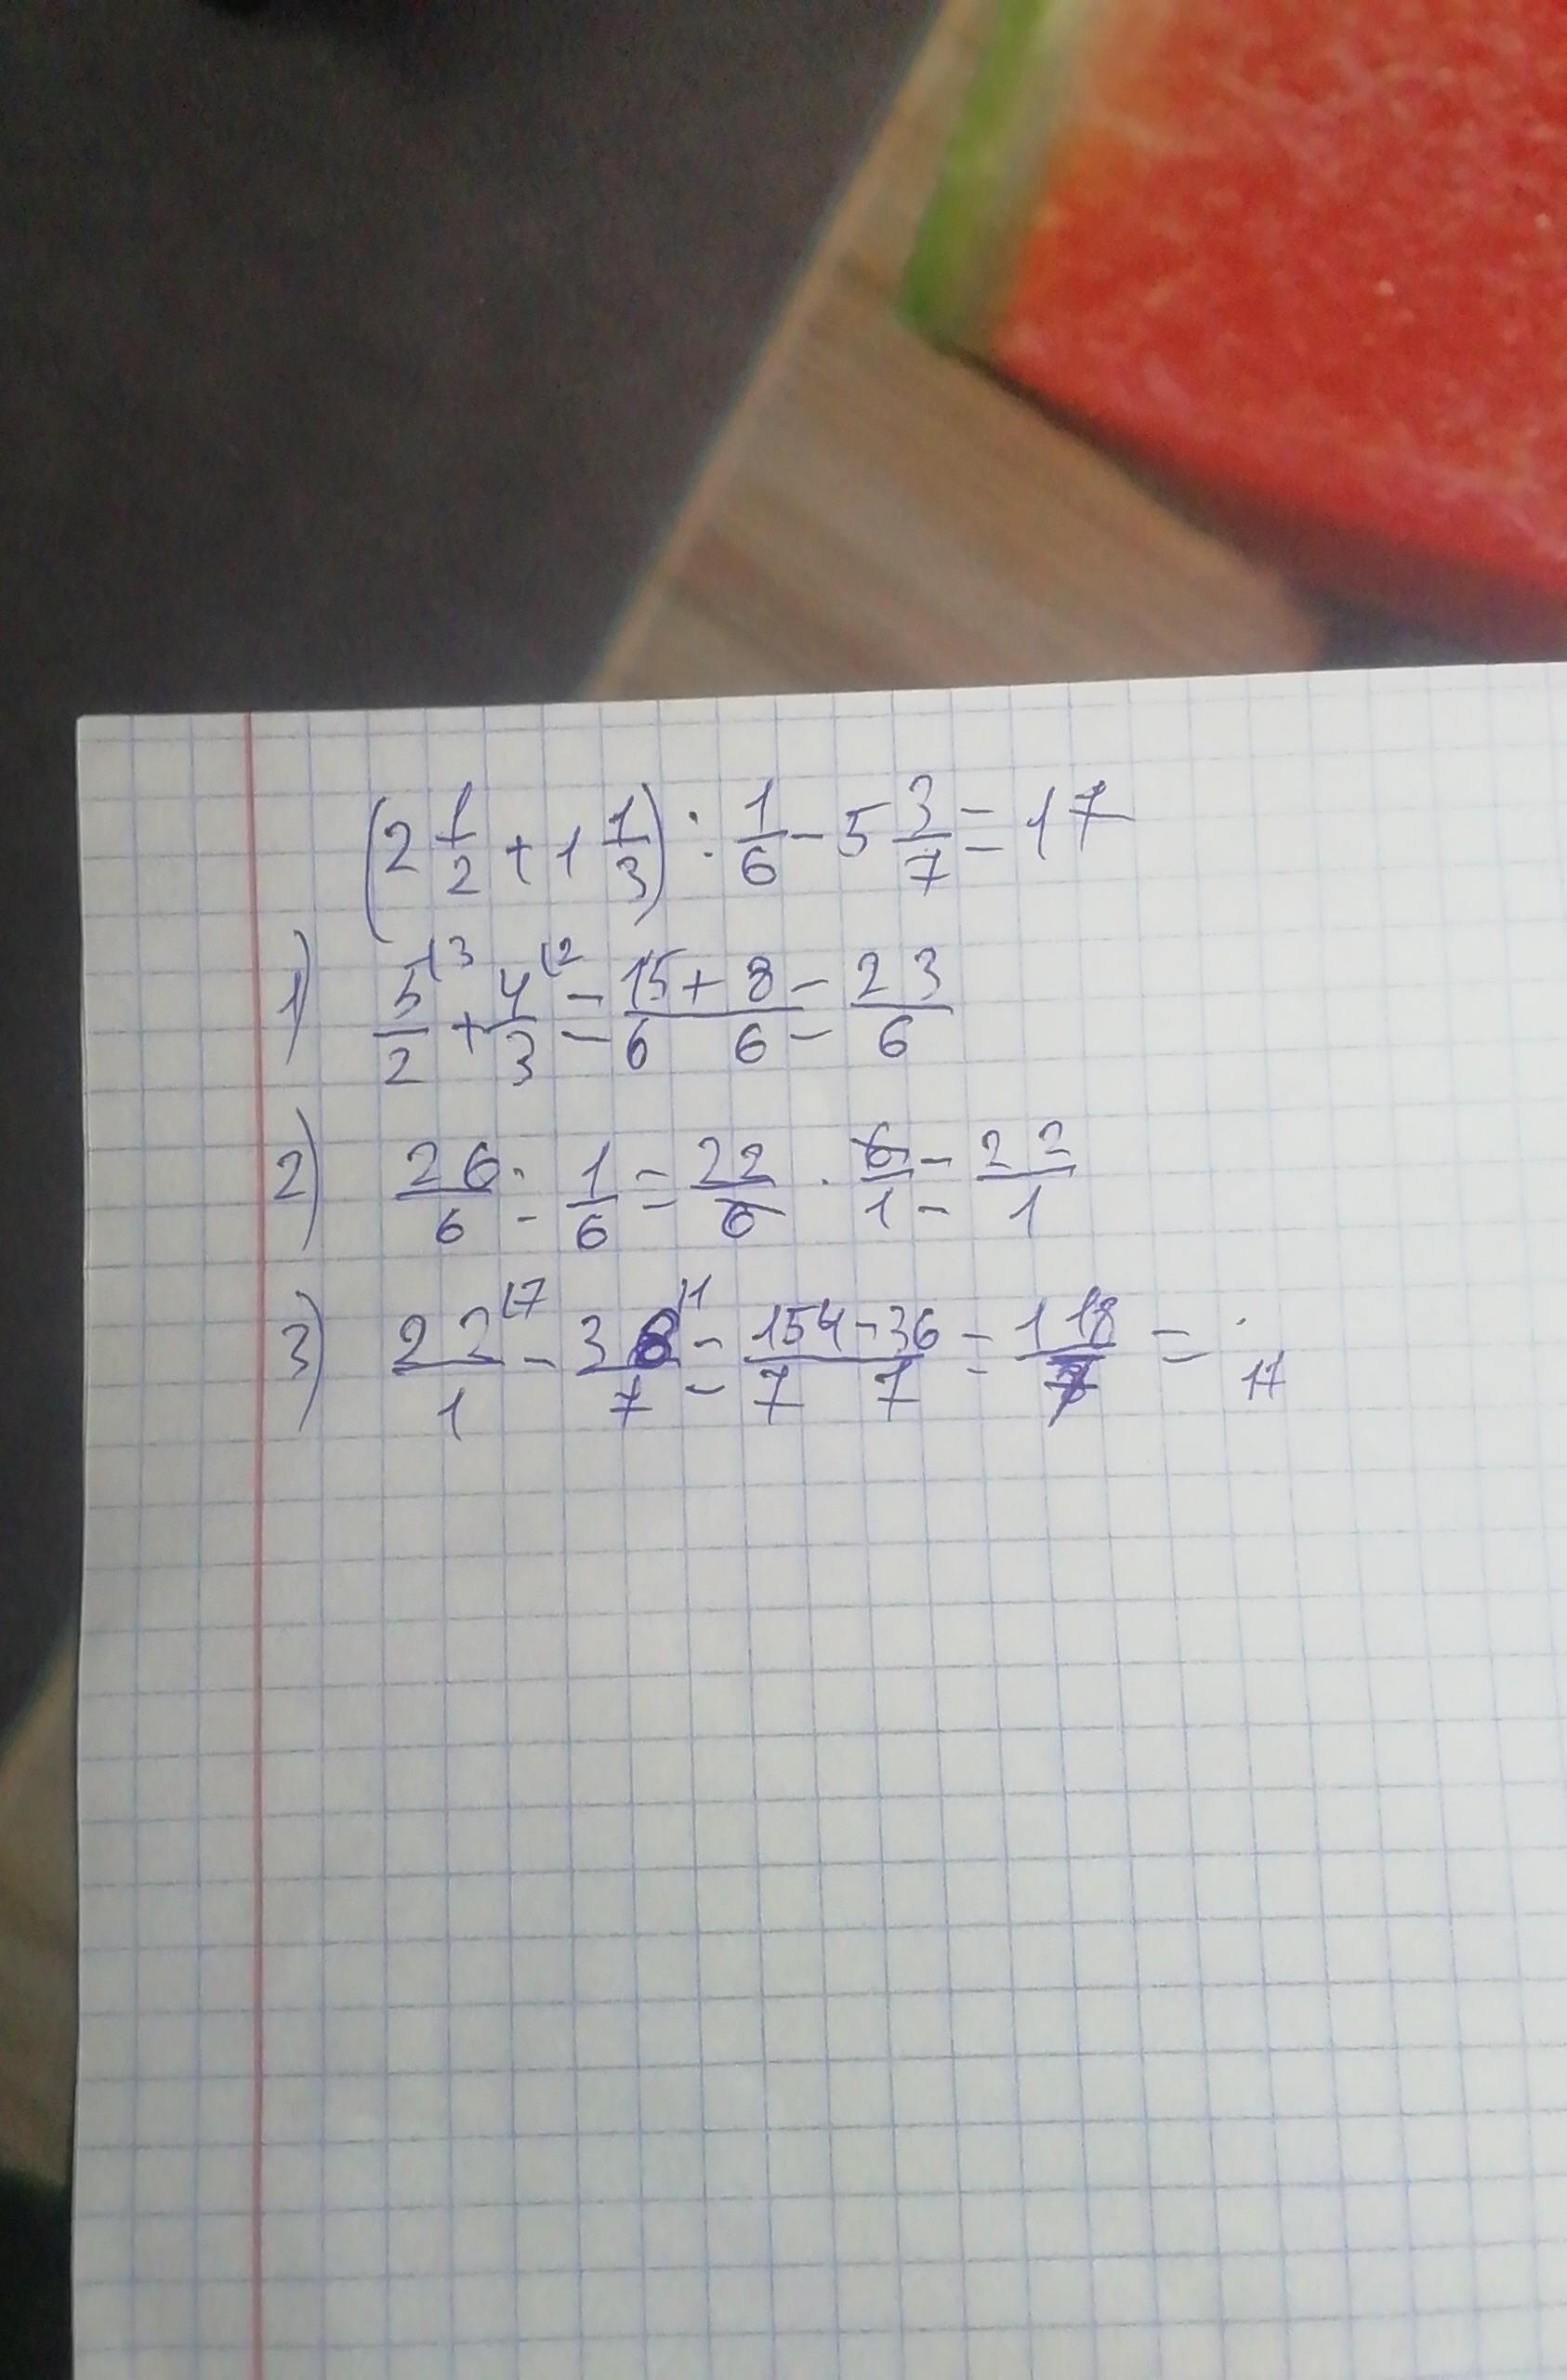 (2 1/2 + 1 1/3) : 1/6 - 5 3/7 = 17
1) 5/2 (3 + 4/3 (2 = 15/6 + 8/6 = 23/6
2) 26/6 : 1/6 = 22/6 · 6/1 = 22/1
3) 22/1 (7 - 38/7 (1 = 154/7 - 36/7 = 118/7 = 17